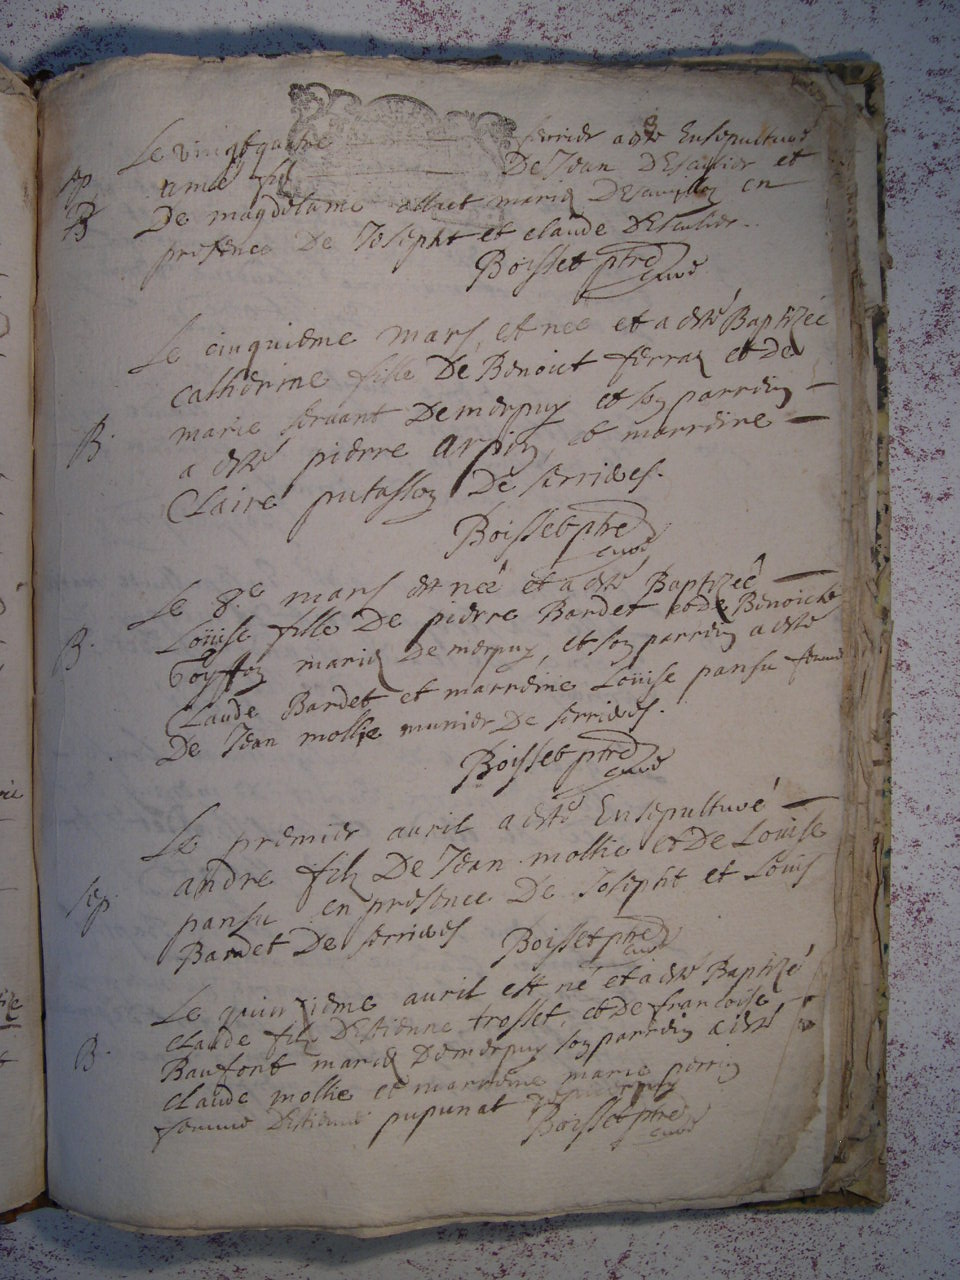 8
Le vingt quatre fevrier a esté Ensepulturé
Sep. aimé fils De Jean DEscussier et
B De magdelaine allact mariez en
presence De Josepht et claude DEscussier.
Boisset ptre curé
Le cinquieme mars, est née et a esté Baptizée
catherine fille De Benoict ferraz et de
marie servant De merpuy et son parrein
B. a esté pierre arpin et marreine
Claire putasson De serrieres.
Boisset ptre curé
Le 8.e mars est neé et a esté Baptizeé
Louise fille De pierre Bardet et de Benoicte
B. Goyffon mariez De merpuy, et son parrein a esté
claude Bardet et marreine Louise pansu femme
De Jean mollie munier De serrieres.
Boisset ptre curé
Le premier auril a esté Ensepulturé
andre filz De Jean mollie et De Louise
Sep. pansu en presence De Josepht et Louis
Bardet De serrieres Boisset ptre curé
Le quinzieme auril est né et a esté Baptizé
claude filz DEstienne trosset, et de francoise
B. Baufort mariez De merpuy son parrein a esté
claude mollie et marreine marie perrin
femme DEstienne pupunat
Boisset ptre curé